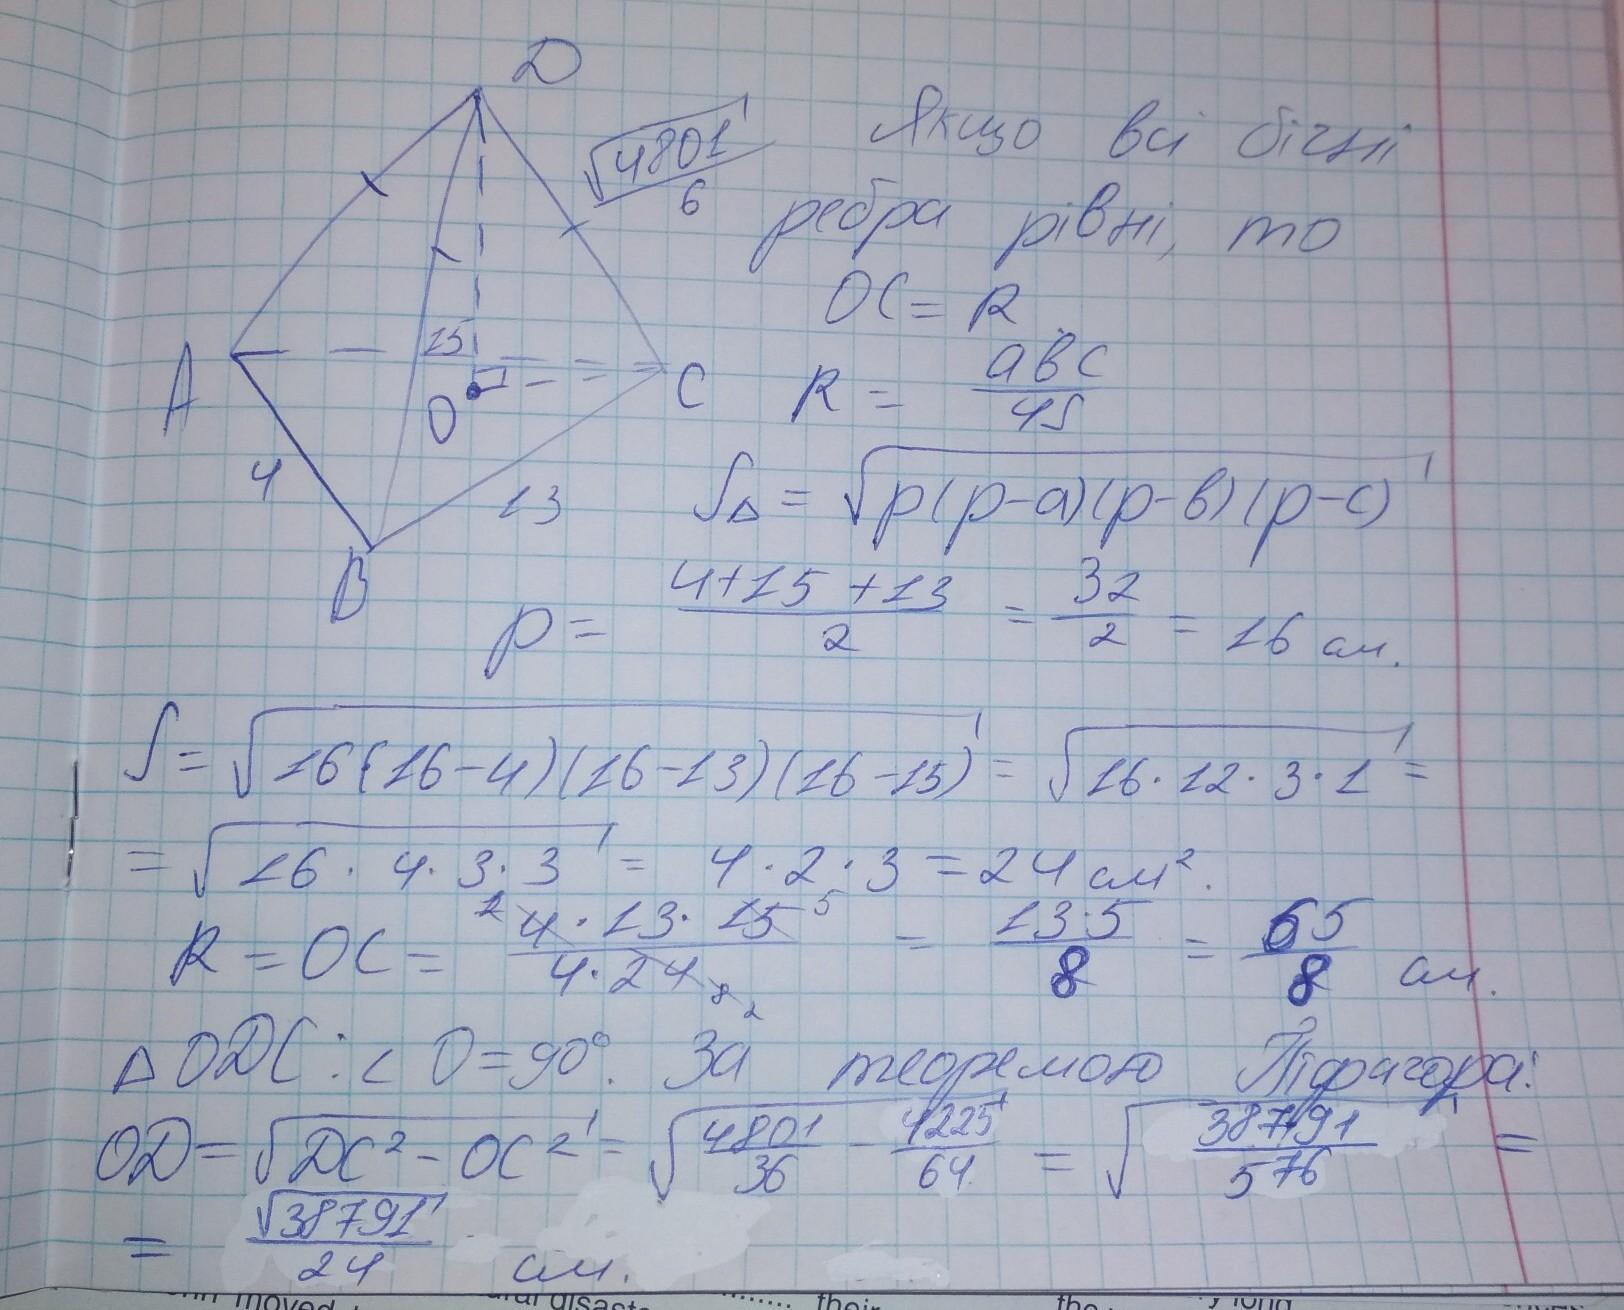 D
√4801/6
Якщо всі бічні
ребра рівні, то
OC = R
A
15
O
C
R = abc/4S
4
13
B
S△ = √p(p-a)(p-в)(p-c)
p = (4+15+13)/2 = 32/2 = 16 см.
S = √16(16-4)(16-13)(16-15) = √16·12·3·1 =
= √16·4·3·3 = 4·2·3 = 24 см².
R = OC = 4·13·15/4·24 = 13·5/8 = 65/8 см.
△ODC: ∠O=90°. За теоремою Піфагора:
OD = √DC² - OC² = √4801/36 - 4225/64 = √38791/576 =
= √38791/24 см.